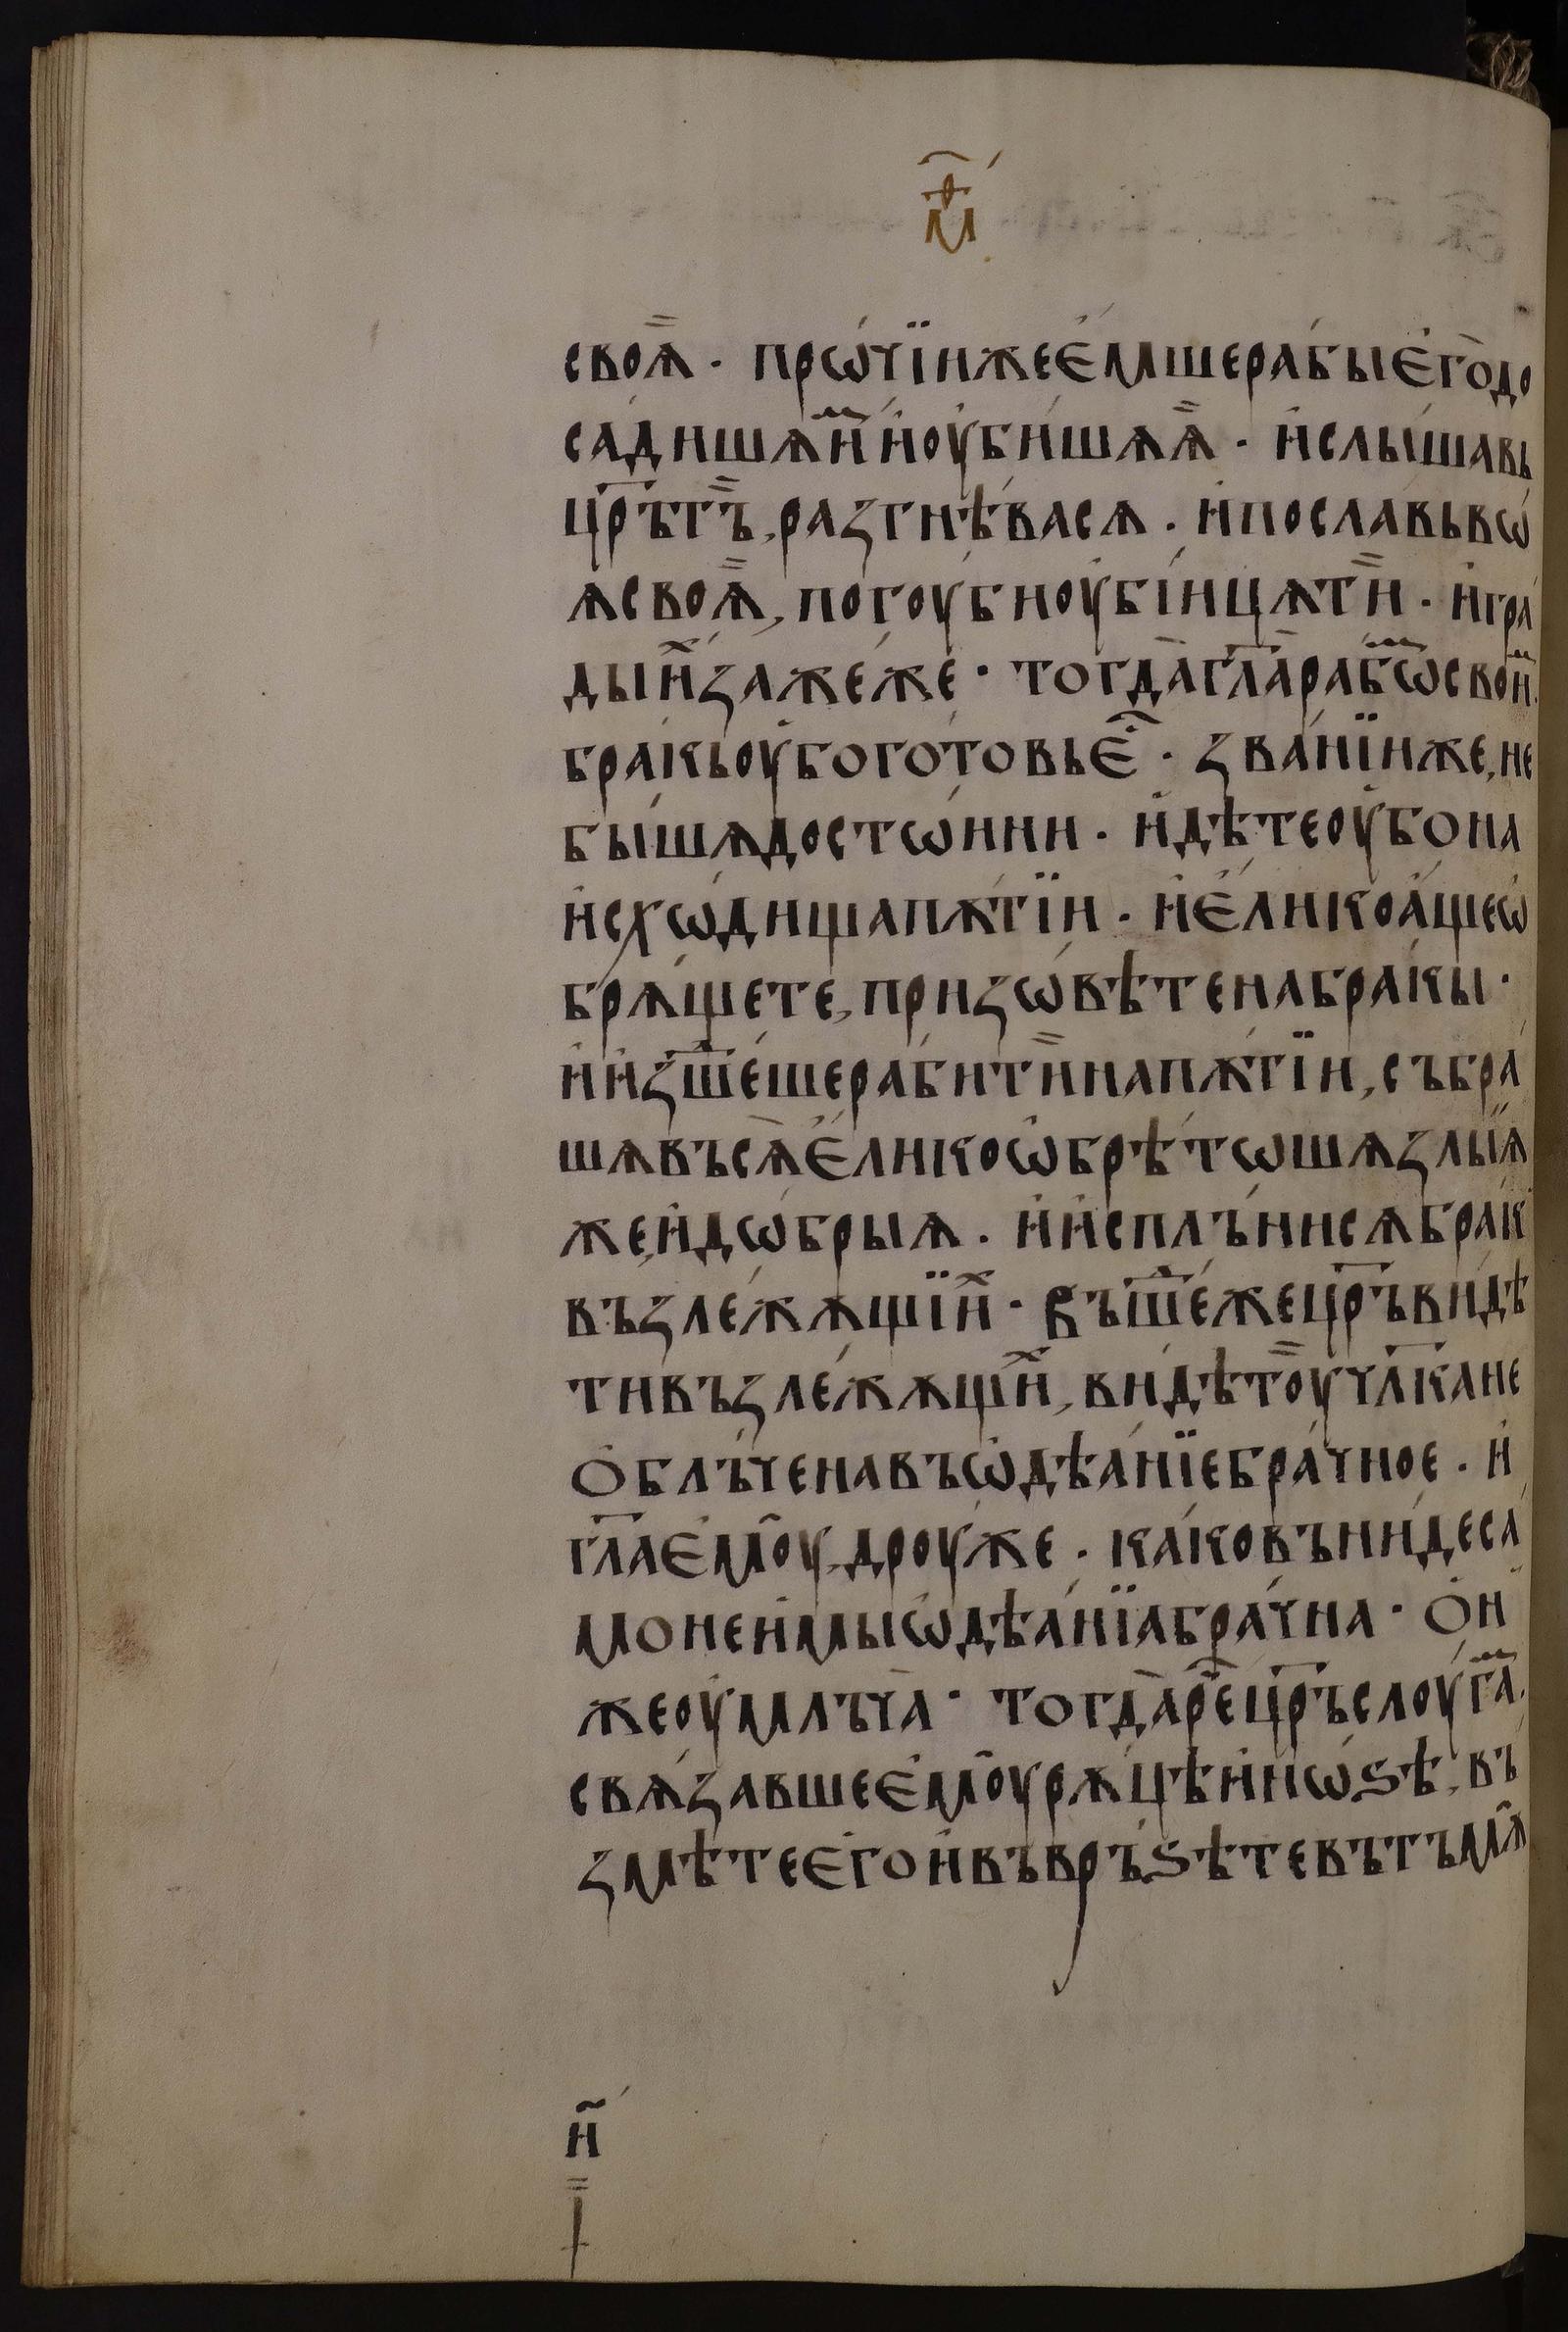 м҃ⷴ
своѧ̏ · прѡ́чїи же е҆́мше рабы̀ є҆го̀ до
сади́шѧ и҆ⷨ и҆ оу҆би́шѧ ѧ̏ · и҆ слы́шавь
цр҃ь тъ̏, разгнѣ́васѧ · и҆ посла́вь вѡ́
ѧ своѧ̏, погоуби́ оу҆бі́ицѫ ти̏ · и҆ гра́
ды и҆ⷯ зажеже · тогда̀ гл҃а рабѡⷨ свои́ⷨ ·
бракь оу҆бо гото́вь є҆ⷭ҇ · зва́нїи же, не
бы́шѧ досто́ини · и҆дѣ́те оу҆́бо на
и҆схѡ́дища пѫтїи · и҆ є҆ли́ко а҆́ще ѡ҆
брѧ́щете, призѡвѣ́те на бра́кы ·
и҆ и҆зше́ⷣше раби́ ти̏ на пѫтїи, събра́
шѧ въсѧ̀ є҆ли́ко ѡ҆брѣ́тѡшѧ злы́ѧ
же, и҆ дѡ́брыѧ · и҆ и҆спль́нисѧ бра́к
възлежѧщїи́ⷯ · въше́ⷣ же цр҃ь ви́дѣ
ти възлежѧщи́ⷯ, ви́дѣ тоу̏ чл҃ка не
ѻ҆блъ́чена въ ѡ҆дѣа́нїе бра́чное · и҆
гл҃а є҆моу̀, дроу́же · ка́ко въни́де сѣ́мо
мо не и҆мы́ ѡ҆дѣа́нїа бра́чна · ѻ҆́н
же оу҆млъча̀ · тогда̀ реⷱ҇ цр҃ь слоуга́ⷨ ·
свѧза́вше є҆моу̀ рѫ́цѣ и҆ нѡ́ѕѣ, въ
змѣ́те є҆го̀ и҆ въвръ́ѕѣте въ тъмѫ̀
н҃